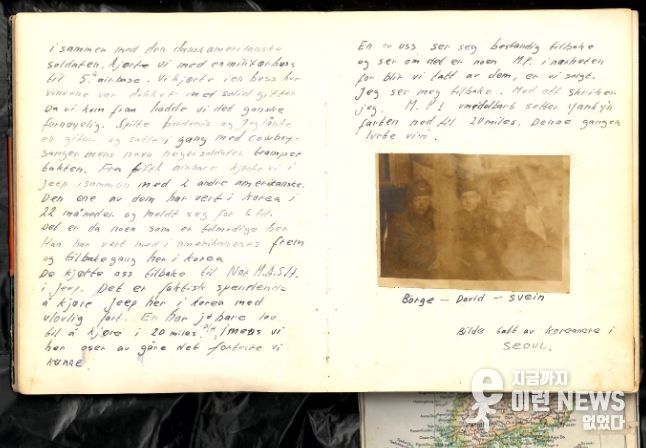 i sammen med den danskamerikanske
soldaten, kjørte vi med en militærbuss
til 5th airbase. Vi kjørte i en buss hvor
vinduene var dekket med solid gitter
Da vi kom fram hadde vi det ganske
fornøyelig. Spilte
en gitar og satte i gang med cowboy-
sanger mens noen negersoldater trampet
takten. Fra fifth airbase kjørte vi i
jeep isammen med 2 andre amerikanske.
Den ene av dem har vert i Korea i
22 måneder og meldt seg for 6 til.
Det er da noen som er tålmodige her
Han har vert med i amerikanernes frem
og tilbakegang her i Korea
De kjørte oss tilbake til Nor M.A.S.H.
i jeep. Det er faktisk spennende
å kjøre jeep her i Korea med
ulovlig fart. En har jo bare lov
til å kjøre i 20 miles. Imens vi
her oser av gåre det forteste vi
kunne.
En av oss ser seg bestandig tilbake
og ser om det er noen M.P. i nærheten
for blir vi tatt av dem, er vi solgt.
Jeg ser meg tilbake. Med ett skriker
jeg. M.P! umiddelbart setter yankyn
farten ned til 20 miles. Denne gangen
lurte vi'n.
Borge - David - Svein
Bilde tatt av Koreanere i
SEOUL.
지금까지
이런 NEWS
없었다